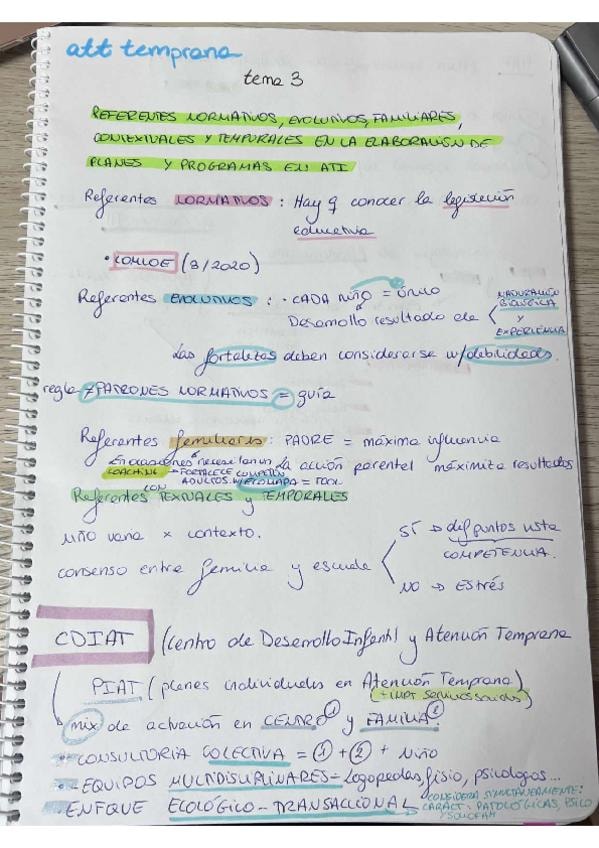 att temprana
tema 3
REFERENTES NORMATIVOS, EVOLUTIVOS, FAMILIARES,
CONTEXTUALES Y TEMPORALES EN LA ELABORACIÓN DE
PLANES Y PROGRAMAS EN ATI
Referentes NORMATIVOS : Hay q conocer la legislación
educativa
• LOMLOE (3/2020)
Referentes EVOLUTIVOS : · CADA niño = único
Desarrollo resultado de < MADURACIÓN
BIOLÓGICA
Y
EXPERIENCIA
Las fortalezas deben considerarse w/debilidades.
regla ≠ PATRONES NORMATIVOS = guía
Referentes familiares : PADRE = máxima influencia
En ocasiones necesitan un
La acción parental maximiza resultados
COACHING → FORTALECE COMPETEN
CON ADULTOS. W/ESCUCHA = TOOL
Referentes TEXTUALES y TEMPORALES
NIÑO varía x contexto.
consenso entre familia y escuela
SÍ → def puntos vista
COMPETENCIA.
NO → ESTRÉS
CDIAT (Centro de Desarrollo Infantil y Atención Temprana
PIAT (planes individuales en Atención Temprana)
mix de actuación en CENTRO ① y FAMILIA ②.
CONSULTORIA COLECTIVA = ① + ② + niño
- EQUIPOS MULTIDISIPLINARES - logopedas, fisio, psicologos...
ENFOQUE ECOLÓGICO - TRANSACCIONAL
CONSIDERA SIMULTANEAMENTE:
CARACT. PATOLÓGICAS, PSICO